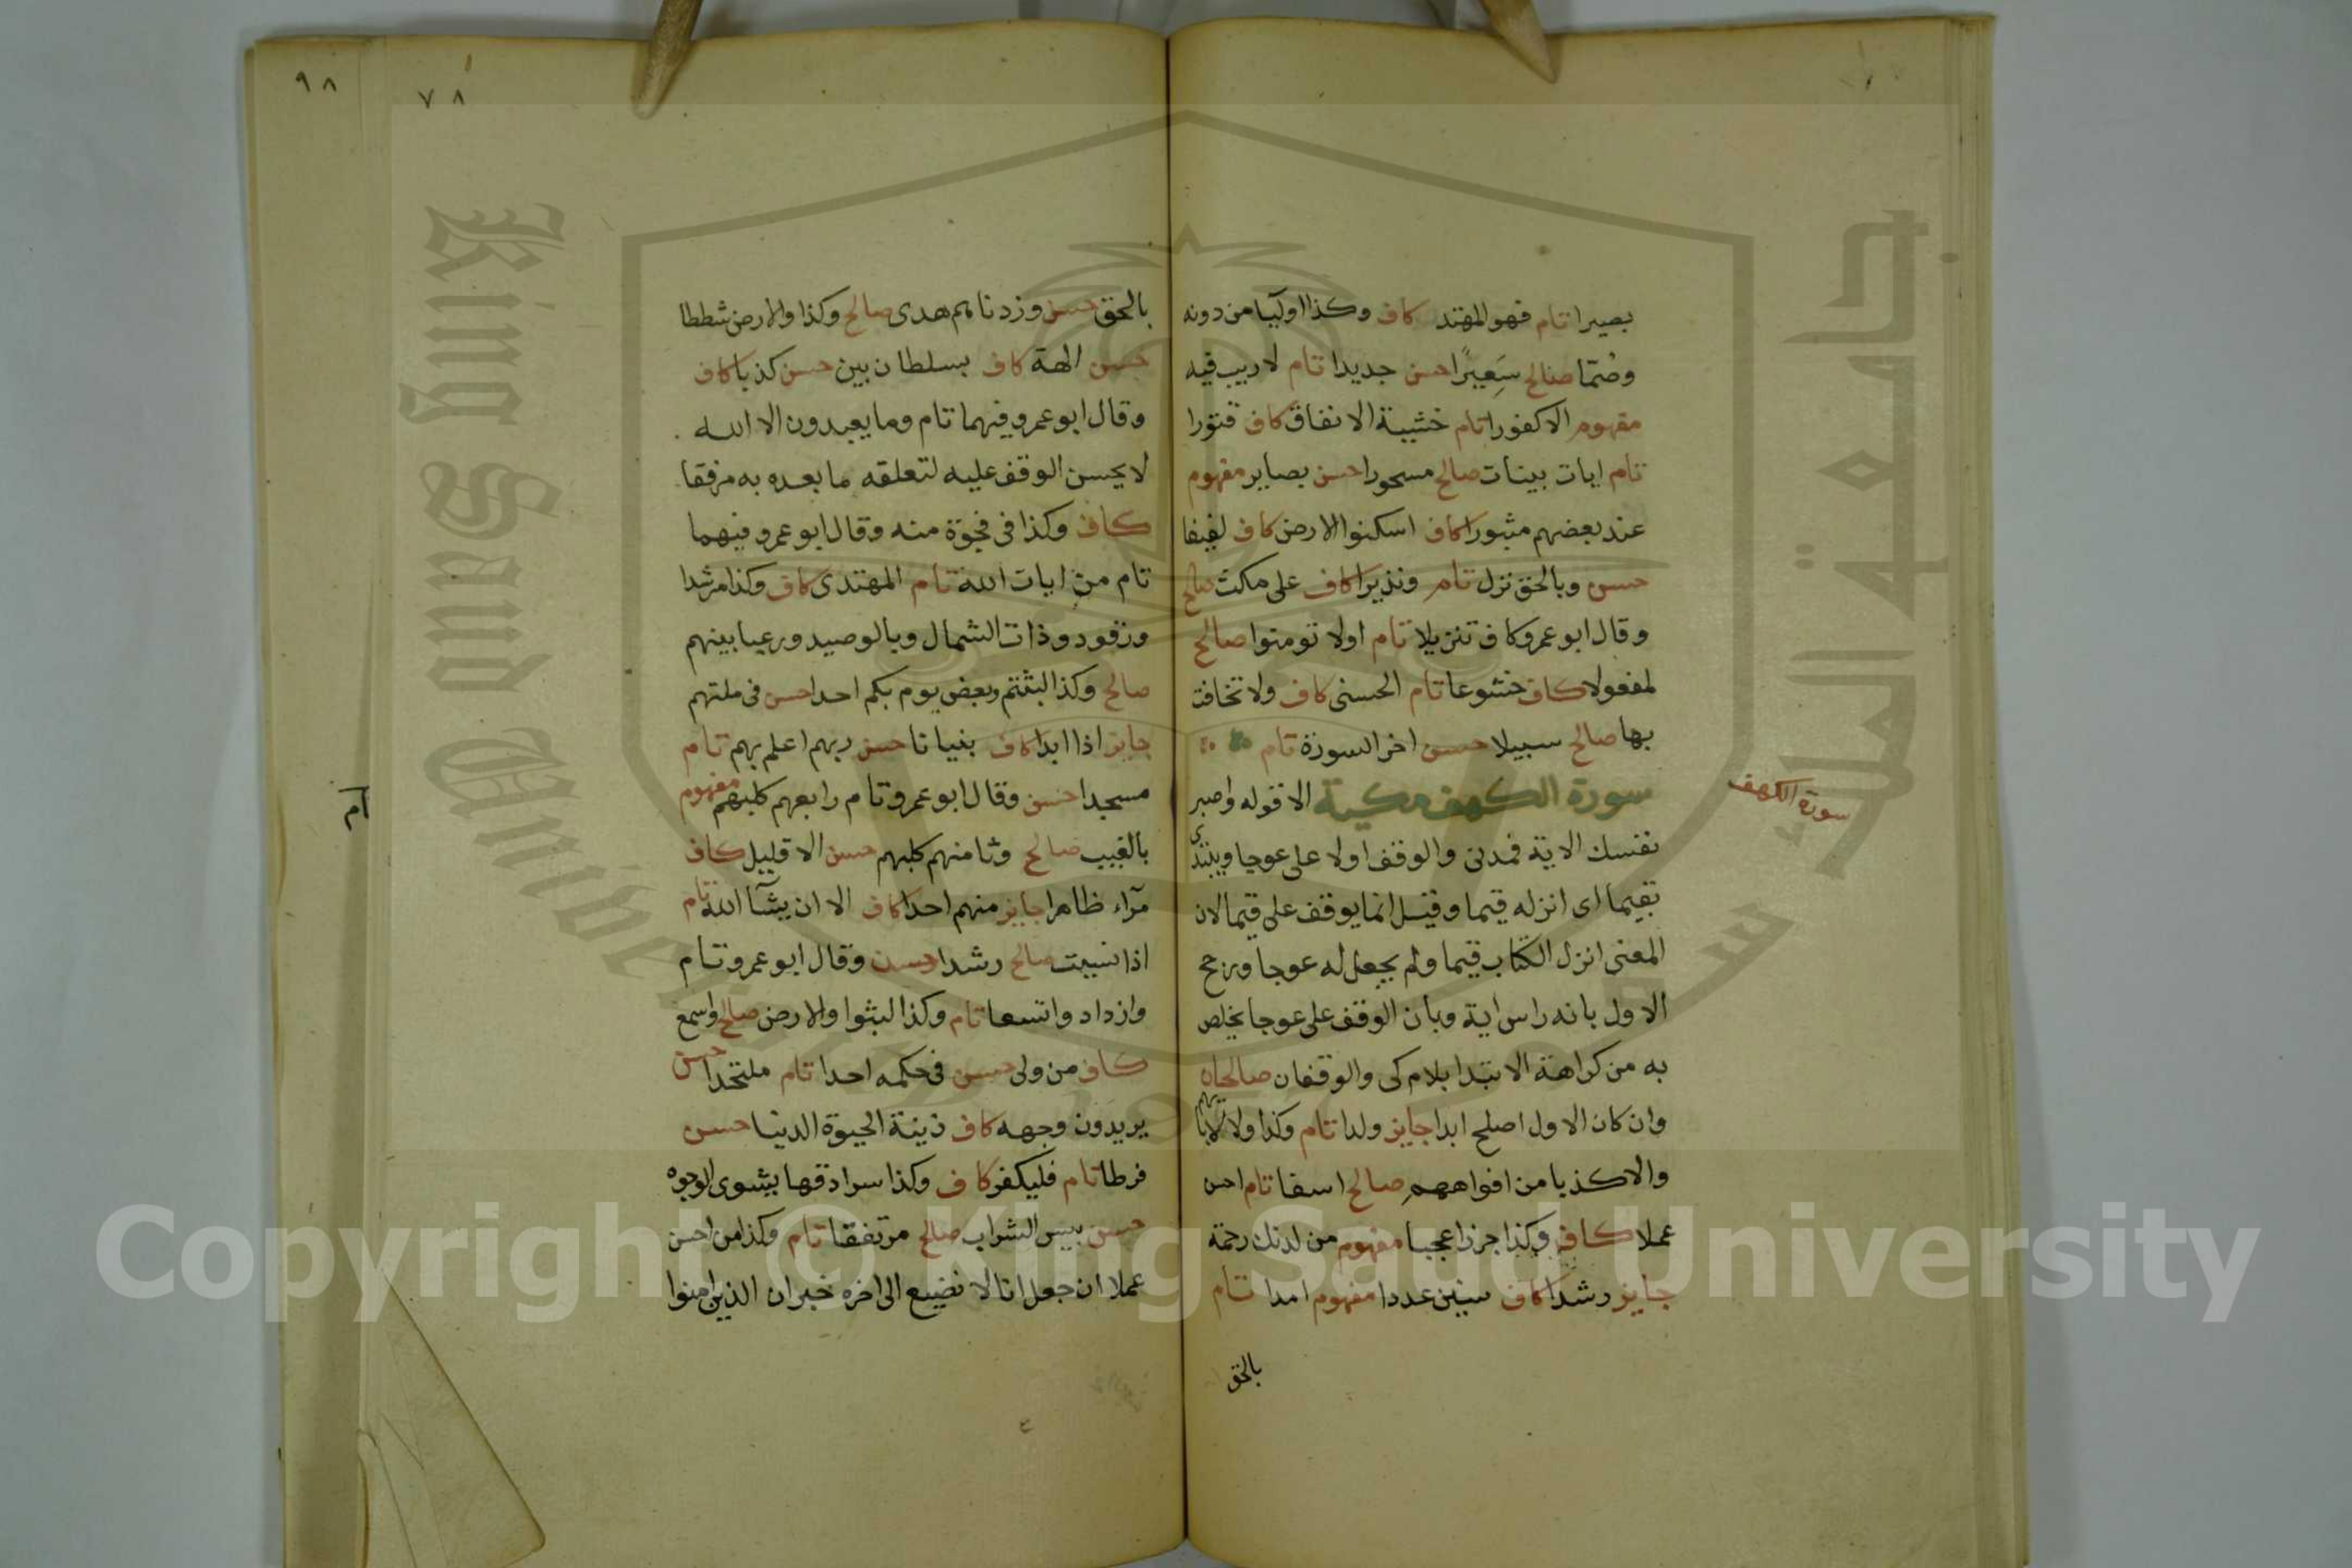 بصيرا تام فهو المهتد كاف وكذا اوليآ من دونه
وصُمّا صالح سَعِيرًا حسن جديدا تام لا ريب فيه
مفهوم الا كفورا تام خشية الانفاق كاف قتورا
تام ايات بينات صالح مسحورا حسن بصاير مفهوم
عند بعضهم مثبورا كاف اسكنوا الارض كاف لفيفا
حسن وبالحق نزل تام ونذيرا كاف على مكث صالح
وقال ابو عمرو كاف تنزيلا تام اولا تومنوا صالح
لمفعولا كاف خشوعا تام الحسنى كاف ولا تخافت
بها صالح سبيلا حسن اخر السورة تام
سورة الكهف مكية الا قوله واصبر
سورة الكهف
نفسك الاية فمدنى والوقف اولا على عوجا ويبتدى
بقيما اى انزله قيما وقيل انما يوقف على قيما لان
المعنى انزل الكتاب قيما ولم يجعل له عوجا ورجح
الاول بانه راس اية وبان الوقف على عوجا يخلص
به من كراهة الابتدا بلام كى والوقفان صالحان
وان كان الاول اصلح ابدا جايز ولدا تام وكذا ولا لابايهم
والا كذبا من افواههم صالح اسفا تام احسن
عملا كاف وكذا جرزا عجبا مفهوم من لدنك رحمة
جايز رشدا كاف سنين عددا مفهوم امدا تام
بالحق
٩٨
٧٨
بالحق حسن وزدناهم هدى صالح وكذا والارض شططا
حسن الهة كاف بسلطان بين حسن كذبا كاف
وقال ابو عمرو فيهما تام وما يعبدون الا الله
لا يحسن الوقف عليه لتعلقه ما بعده به مرفقا
كاف وكذا فى فجوة منه وقال ابو عمرو فيهما
تام من ايات الله تام المهتدى كاف وكذا مرشدا
ورقود وذات الشمال وبالوصيد ورعبا بينهم
صالح وكذا لبثتم وبعض يوم بكم احدا حسن فى ملتهم
جايز اذا ابدا كاف بنيانا حسن ربهم اعلم بهم تام
مسجدا حسن وقال ابو عمرو تام رابعهم كلبهم مفهوم
بالغيب صالح وثامنهم كلبهم حسن الا قليل كاف
مرآء ظاهرا جايز منهم احدا كاف الا ان يشآ الله تام
اذا نسيت صالح رشدا حسن وقال ابو عمرو تام
وازداد واتسعا تام وكذا لبثوا والارض صالح واسمع
كاف من ولى حسن فى حكمه احدا تام ملتحدا حسن
يريدون وجهه كاف زينة الحيوة الدنيا حسن
فرطا تام فليكفر كاف وكذا سرادقها يشوى الوجوه
حسن بيس الشراب صالح مرتفقا تام وكذا من احسن
عملا ان جعل انا لا نضيع الى اخره خبر ان الذين امنوا
King Saud University
جامعة الملك س
Copyright © King Saud University